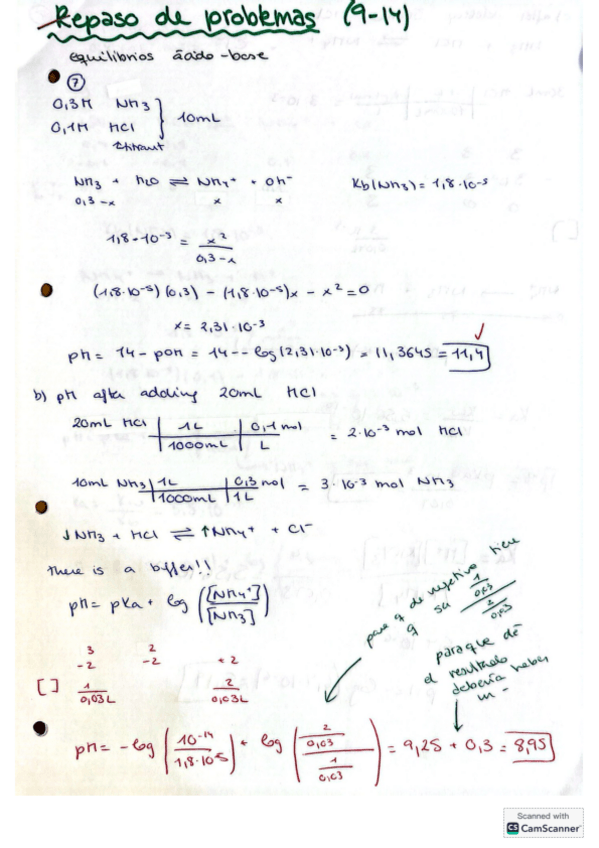 Repaso de problemas (9-14)
equilibrios ácido-base
7
0,3M NH3
0,1M HCl } 10mL
titrant
NH3 + H2O ⇌ NH4+ + OH- Kb(NH3) = 1,8·10-5
0,3-x x x
1,8·10-5 = x2 / 0,3-x
(1,8·10-5)(0,3) - (1,8·10-5)x - x2 = 0
x = 2,31·10-3
pH = 14 - pOH = 14 - - log(2,31·10-3) = 11,3645 = 11,4 ✓
b) pH after adding 20mL HCl
20mL HCl | 1L / 1000mL | 0,1 mol / L = 2·10-3 mol HCl
10mL NH3 | 1L / 1000mL | 0,3 mol / 1L = 3·10-3 mol NH3
↓NH3 + HCl ⇌ ↑NH4+ + Cl-
there is a buffer!!
pH = pKa + log ([NH4+] / [NH3])
para q de negativo tien
q su 1/0,03 / 2/0,03
para que dé
el resultado
debería haber
un -
3 2
-2 -2 +2
[ ] 1/0,03L 2/0,03L
pH = -log (10-14 / 1,8·10-5) + log (2/0,03 / 1/0,03) = 9,25 + 0,3 = 8,95
Scanned with
CS CamScanner